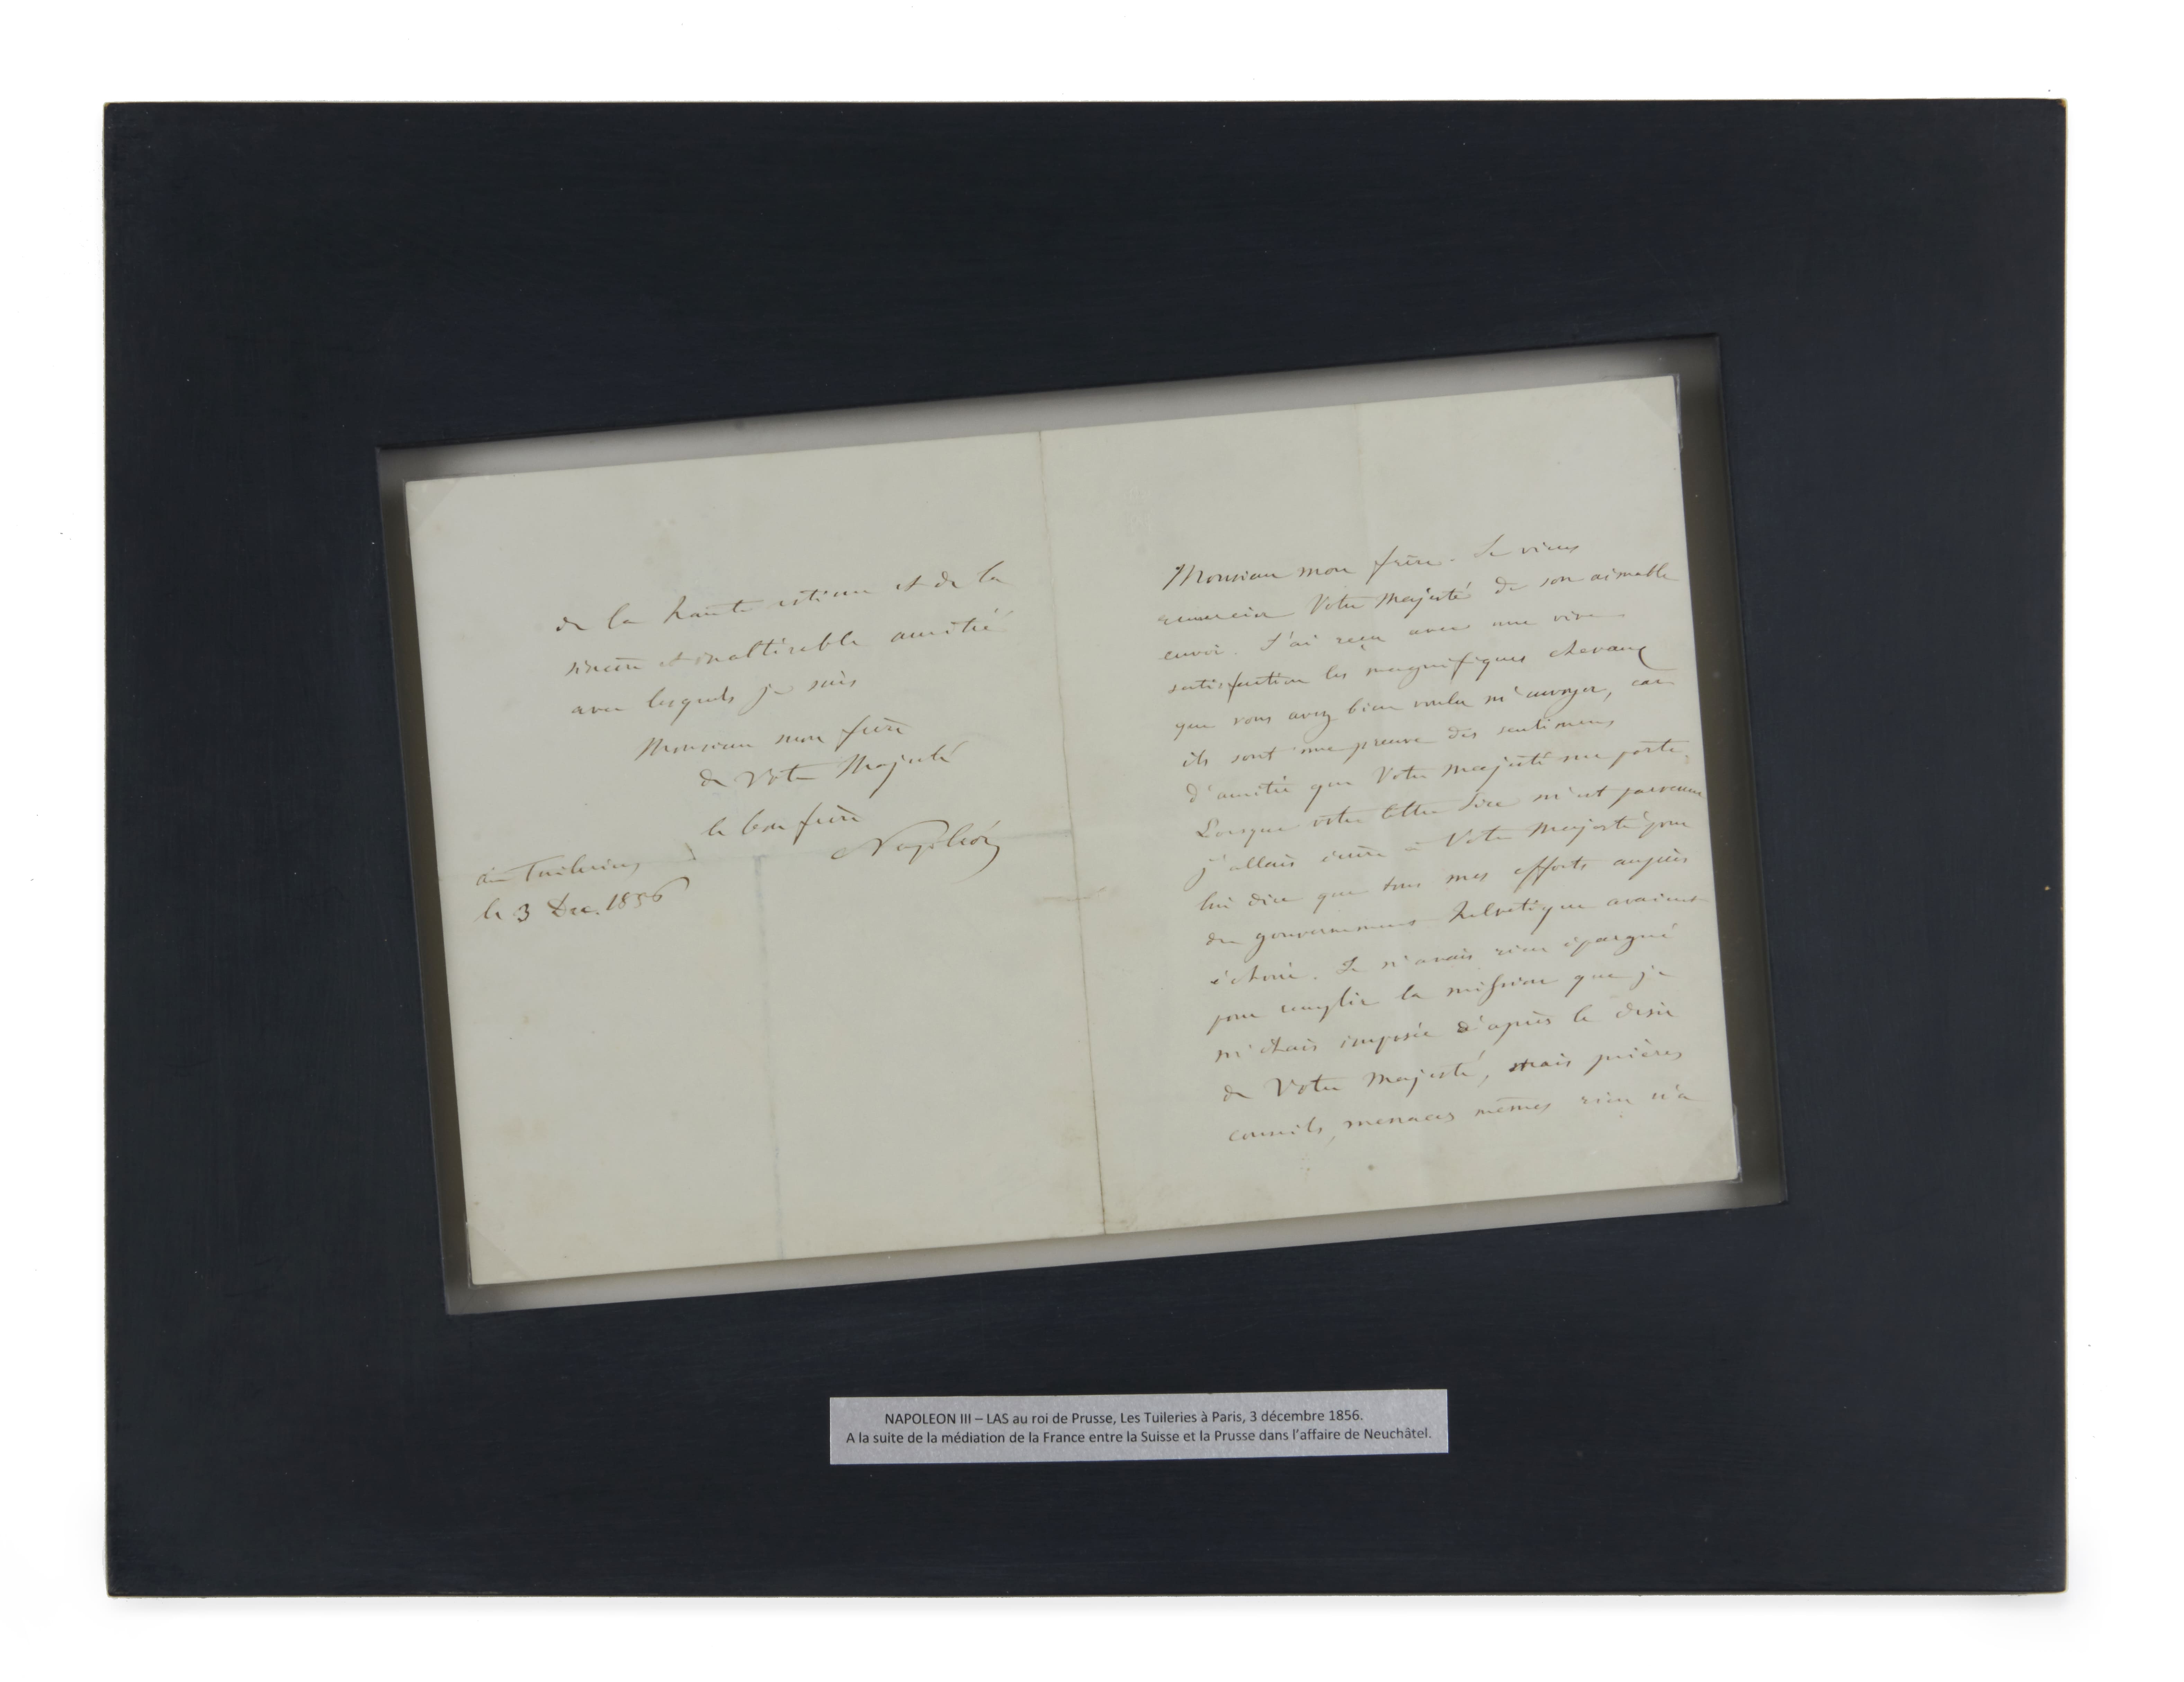 Monsieur mon frère. Je viens
remercier Votre Majesté de son aimable
envoi. J'ai reçu avec une vive
satisfaction les magnifiques chevaux
que vous avez bien voulu m'envoyer, car
ils sont une preuve des sentimens
d'amitié que Votre Majesté me porte.
Lorsque votre lettre Sire m'est parvenue
j'allais écrire à Votre Majesté pour
lui dire que tous mes efforts auprès
du gouvernement helvétique avaient
échoué. Je n'avais rien épargné
pour remplir la mission que je
m'étais imposée d'après le désir
de Votre Majesté, mais prières
conseils, menaces mêmes rien n'a
de la haute estime et de la
sincère et inaltérable amitié
avec lesquels je suis
Monsieur mon frère
de Votre Majesté
le bon frère
Napoléon
aux Tuileries
le 3 Dec. 1856
NAPOLEON III – LAS au roi de Prusse, Les Tuileries à Paris, 3 décembre 1856.
A la suite de la médiation de la France entre la Suisse et la Prusse dans l'affaire de Neuchâtel.